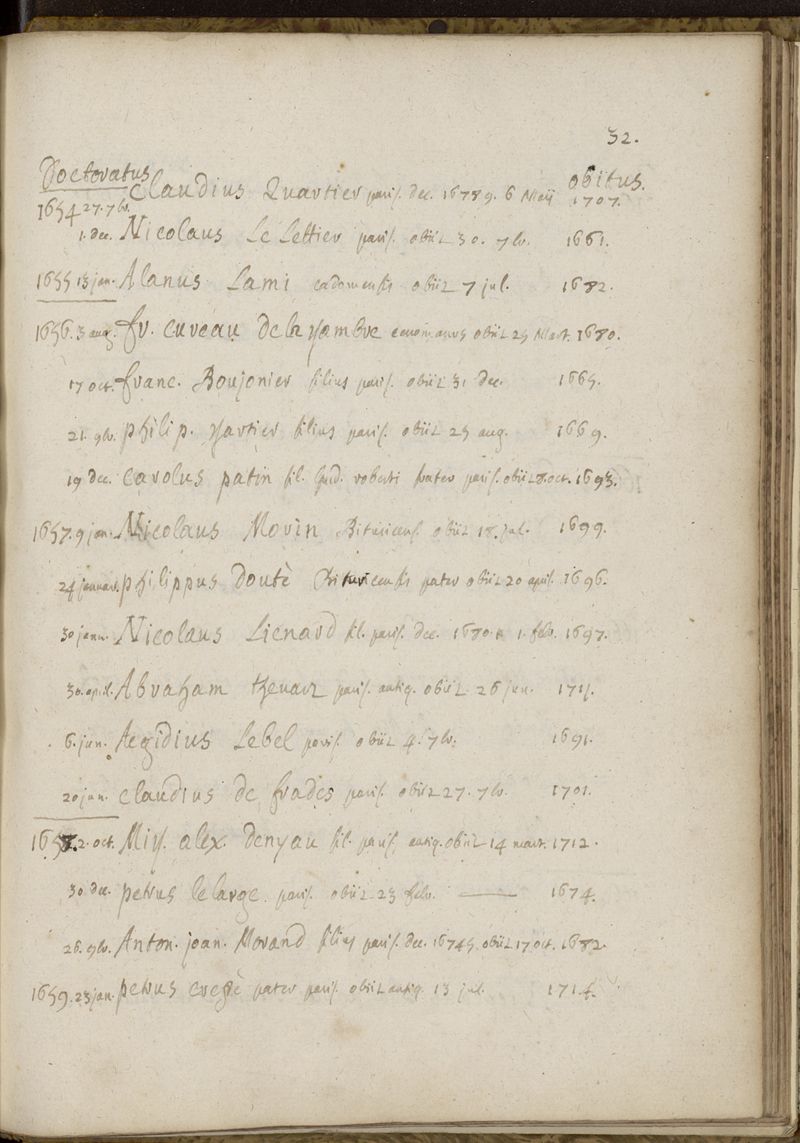 32.
Doctoratus obitus.
1654 27. 7br. Claudius Quartier paris. dec. 1678 9. 6 Maij 1707.
1. dec. Nicolaus Le Lettier paris. obiit 30. 7br. 1661.
1655 13 jan. Alanus Lami cadomensis obiit 7 jul. 1682.
1656. 3 aug. fr. cureau De la Chambre cenomanus obiit 25 Mart. 1680.
17 oct. franc. Boujonier filius paris. obiit 31 dec. 1665.
21. 9br. philip. hartier filius paris. obiit 25 aug. 1669.
19 dec. carolus patin fil. Guid. roberti frater paris. obiit 8. oct. 1693.
1657. 9 jan. Nicolaus Morin Bituricens. obiit 18. jul. 1699.
24 januar. philippus Doutè Bituricensis pater obiit 20 april. 1696.
30 janu. Nicolaus Lienard fil. paris. dec. 1680. 1. febr. 1697.
30. april. Abraham thevart paris. antiq. obiit 26 jun. 1711.
6. jun. Aegidius Lebel paris. obiit 4. 7br. 1691.
20 jun. claudius de frades paris. obiit 27. 7br. 1701.
1658. 2. oct. Mic. alex. Denyau fil. paris. antiq. obiit 14 mart. 1712.
30 dec. petrus le large. paris. obiit 23 febr. 1674.
26. 9br. Anton. joan. Morand filius paris. dec. 1674 5. obiit 17 oct. 1682.
1659. 23 jan. petrus cressè pater paris. obiit antiq. 13 jul. 1714.